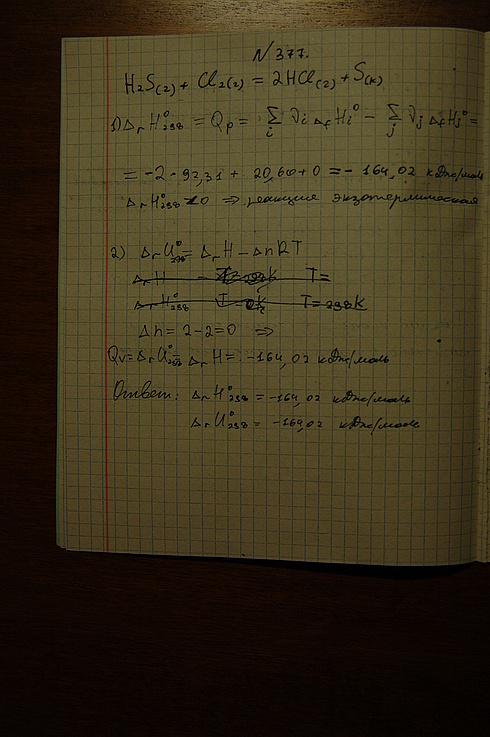 N 377.
H₂S(г) + Cl₂(г) = 2HCl(г) + S(к)
1) ΔᵣH°₂₉₈ = Qp = Σᵢ νᵢ ΔfHᵢ° − Σⱼ νⱼ ΔfHⱼ° =
= -2·92,31 + 20,60 + 0 = -164,02 кДж/моль
ΔᵣH°₂₉₈ < 0 ⇒ реакция экзотермическая
2) ΔᵣU°₂₉₈ = ΔᵣH − ΔnRT
ΔᵣH T=
ΔᵣH°₂₉₈ T = 298K
Δn = 2-2=0 ⇒
Qv = ΔᵣU°₂₉₈ = ΔᵣH = -164,02 кДж/моль
Ответ: ΔᵣH°₂₉₈ = -164,02 кДж/моль
ΔᵣU°₂₉₈ = -164,02 кДж/моль